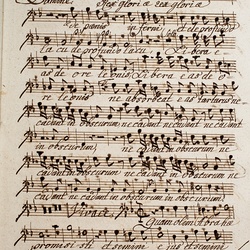 Domine. Rex gloriae rex gloriae
de poenis inferni et de profundo
lacu de profundo lacu. Libera
eas de ore leonis Libera eas de o
re leonis ne absorbeat eas tartarus ne
cadant in obscurum ne cadant ne cadant ne cadant
in obscurum ne cadant in obscurum ne
cadant in obscurum ne cadant in obscurum ne
cadant ne cadant in obscurum ne cadant in obscurum.
Vivace Quam olim Abrahae
promisisti et semini ejus et semini